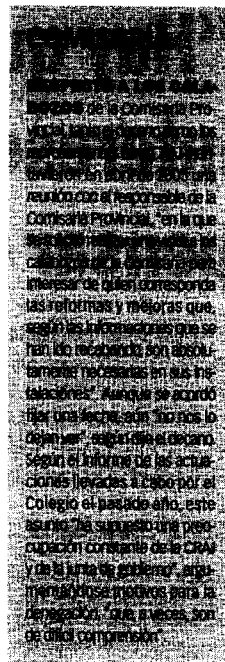 de la Comisaría Pro-
vincial, tanto el decano como los
en abril de 2006 una
reunión con el responsable de la
Comisaría Provincial, "en la que
se solicitó visitar los
calabozos de la Comisaría para
interesar de quien corresponda
las reformas y mejoras que,
según las informaciones que se
han ido recabando son absolu-
tamente necesarias en sus ins-
talaciones". Aunque se acordó
fijar una fecha, aún "no nos lo
dejan ver", según dijo el decano.
Según el informe de las actua-
ciones llevadas a cabo por el
Colegio el pasado año, este
asunto "ha supuesto una preo-
cupación constante de la CRAJ
y de la junta de gobierno", argu-
mentándose motivos para la
denegación, "que a veces, son
de difícil comprensión".